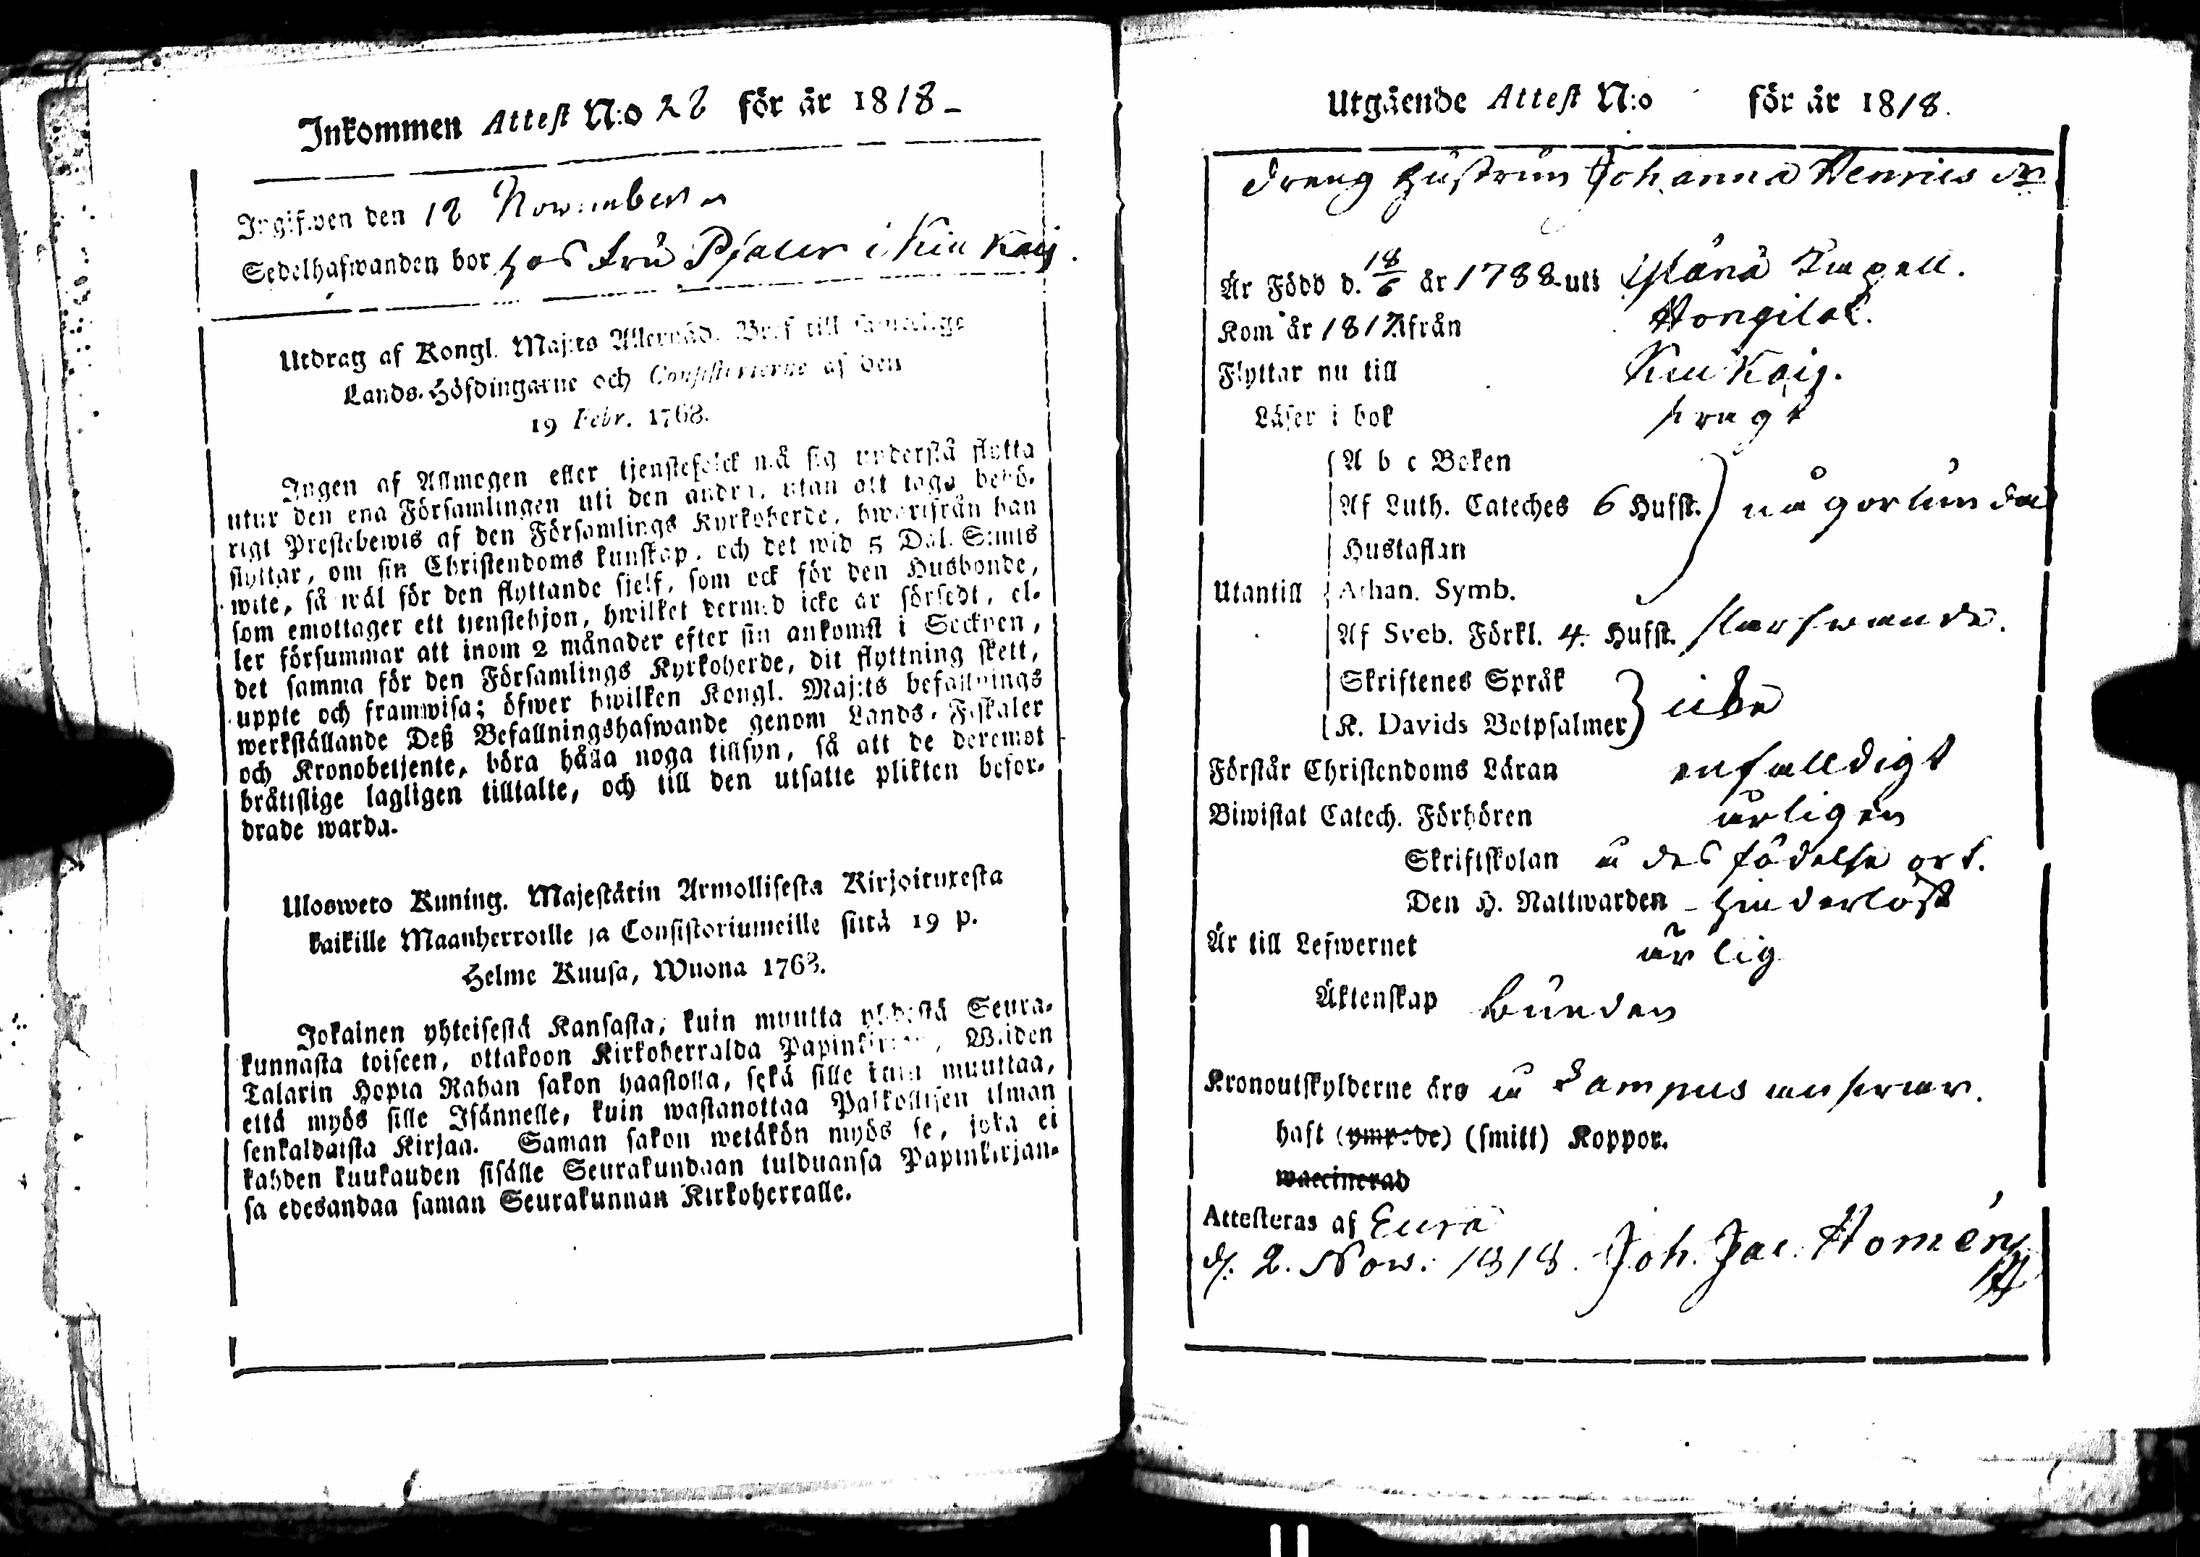 Inkommen Attest N:o 28 för år 1818
Ingifwen den 18 November
Sedelhafwanden bor hos Fru Pjaler i Kiukais.
Utdrag af Kongl. Maj:ts Allernåd. Bref till samtelige
Lands-Höfdingarne och Consistorierne af den
19 Febr. 1768.
Ingen af Allmogen eller tjenstefolck må sig understå flytta
utur den ena Församlingen uti den andra, utan att taga behö-
rigt Prestebewis af den Församlings Kyrkoherde, hwarifrån han
flyttar, om sin Christendoms kunskap, och det wid 5 Dal. S:mts
wite, så wäl för den flyttande sjelf, som ock för den Husbonde,
som emottager ett tjenstehjon, hwilket dermed icke är försedt, el-
ler försummar att inom 2 månader efter sin ankomst i Socknen,
det samma för den Församlings Kyrkoherde, dit flyttning skett,
uppte och framwisa; öfwer hwilken Kongl. Maj:ts befallnings
werkställande Deß Befallningshafwande genom Lands-Fiskaler
och Kronobetjente, böra hålla noga tillsyn, så att de deremot
bråttslige lagligen tilltalte, och till den utsatte plikten befor-
drade warda.
Ulosweto Kuning. Majestätin Armollisesta Kirjoituxesta
kaikille Maanherroille ja Consistoriumeille siitä 19 p.
Helme Kuusa, Wuona 1768.
Jokainen yhteisestä Kansasta, kuin muutta yhdestä Seura-
kunnasta toiseen, ottakoon Kirkoherralda Papinkirjan, Wiiden
Talarin Hopia Rahan sakon haastolla, sekä sille kuin muuttaa,
että myös sille Isännelle, kuin wastanottaa Palkollisen ilman
senkaldaista Kirjaa. Saman sakon wetäkön myös se, joka ei
kahden kuukauden sisälle Seurakundaan tulduansa Papinkirjan-
sa edesandaa saman Seurakunnan Kirkoherralle.
Utgående Attest N:o för år 1818.
Dreng Hustrun Johanna Henrics dr
Är Född d. 18/6 år 1788 uti
Kom år 1817 ifrån Hongilax.
Flyttar nu till Kiukais.
Läser i bok swagt
A b c Boken
Af Luth. Cateches 6 Hufst. någorlunda
Hustaflan
Utantill Athan. Symb.
Af Sveb. Förkl. 4. Hufst. starfwande.
Skriftenes Språk
K. Davids Botpsalmer icke
Förstår Christendoms Läran enfalldigt
Biwistat Catech. Förhören årligen
Skriftskolan å des födelse ort.
Den H. Nattwarden - hinderlöst
Är till Lefwernet ärlig
Äktenskap bunden
Kronoutskylderne äro
haft (ympade) (smitt) Koppor.
waccinerad
Attesteras af Eura
d. 2. Nov. 1818. Joh. Jac. Homén